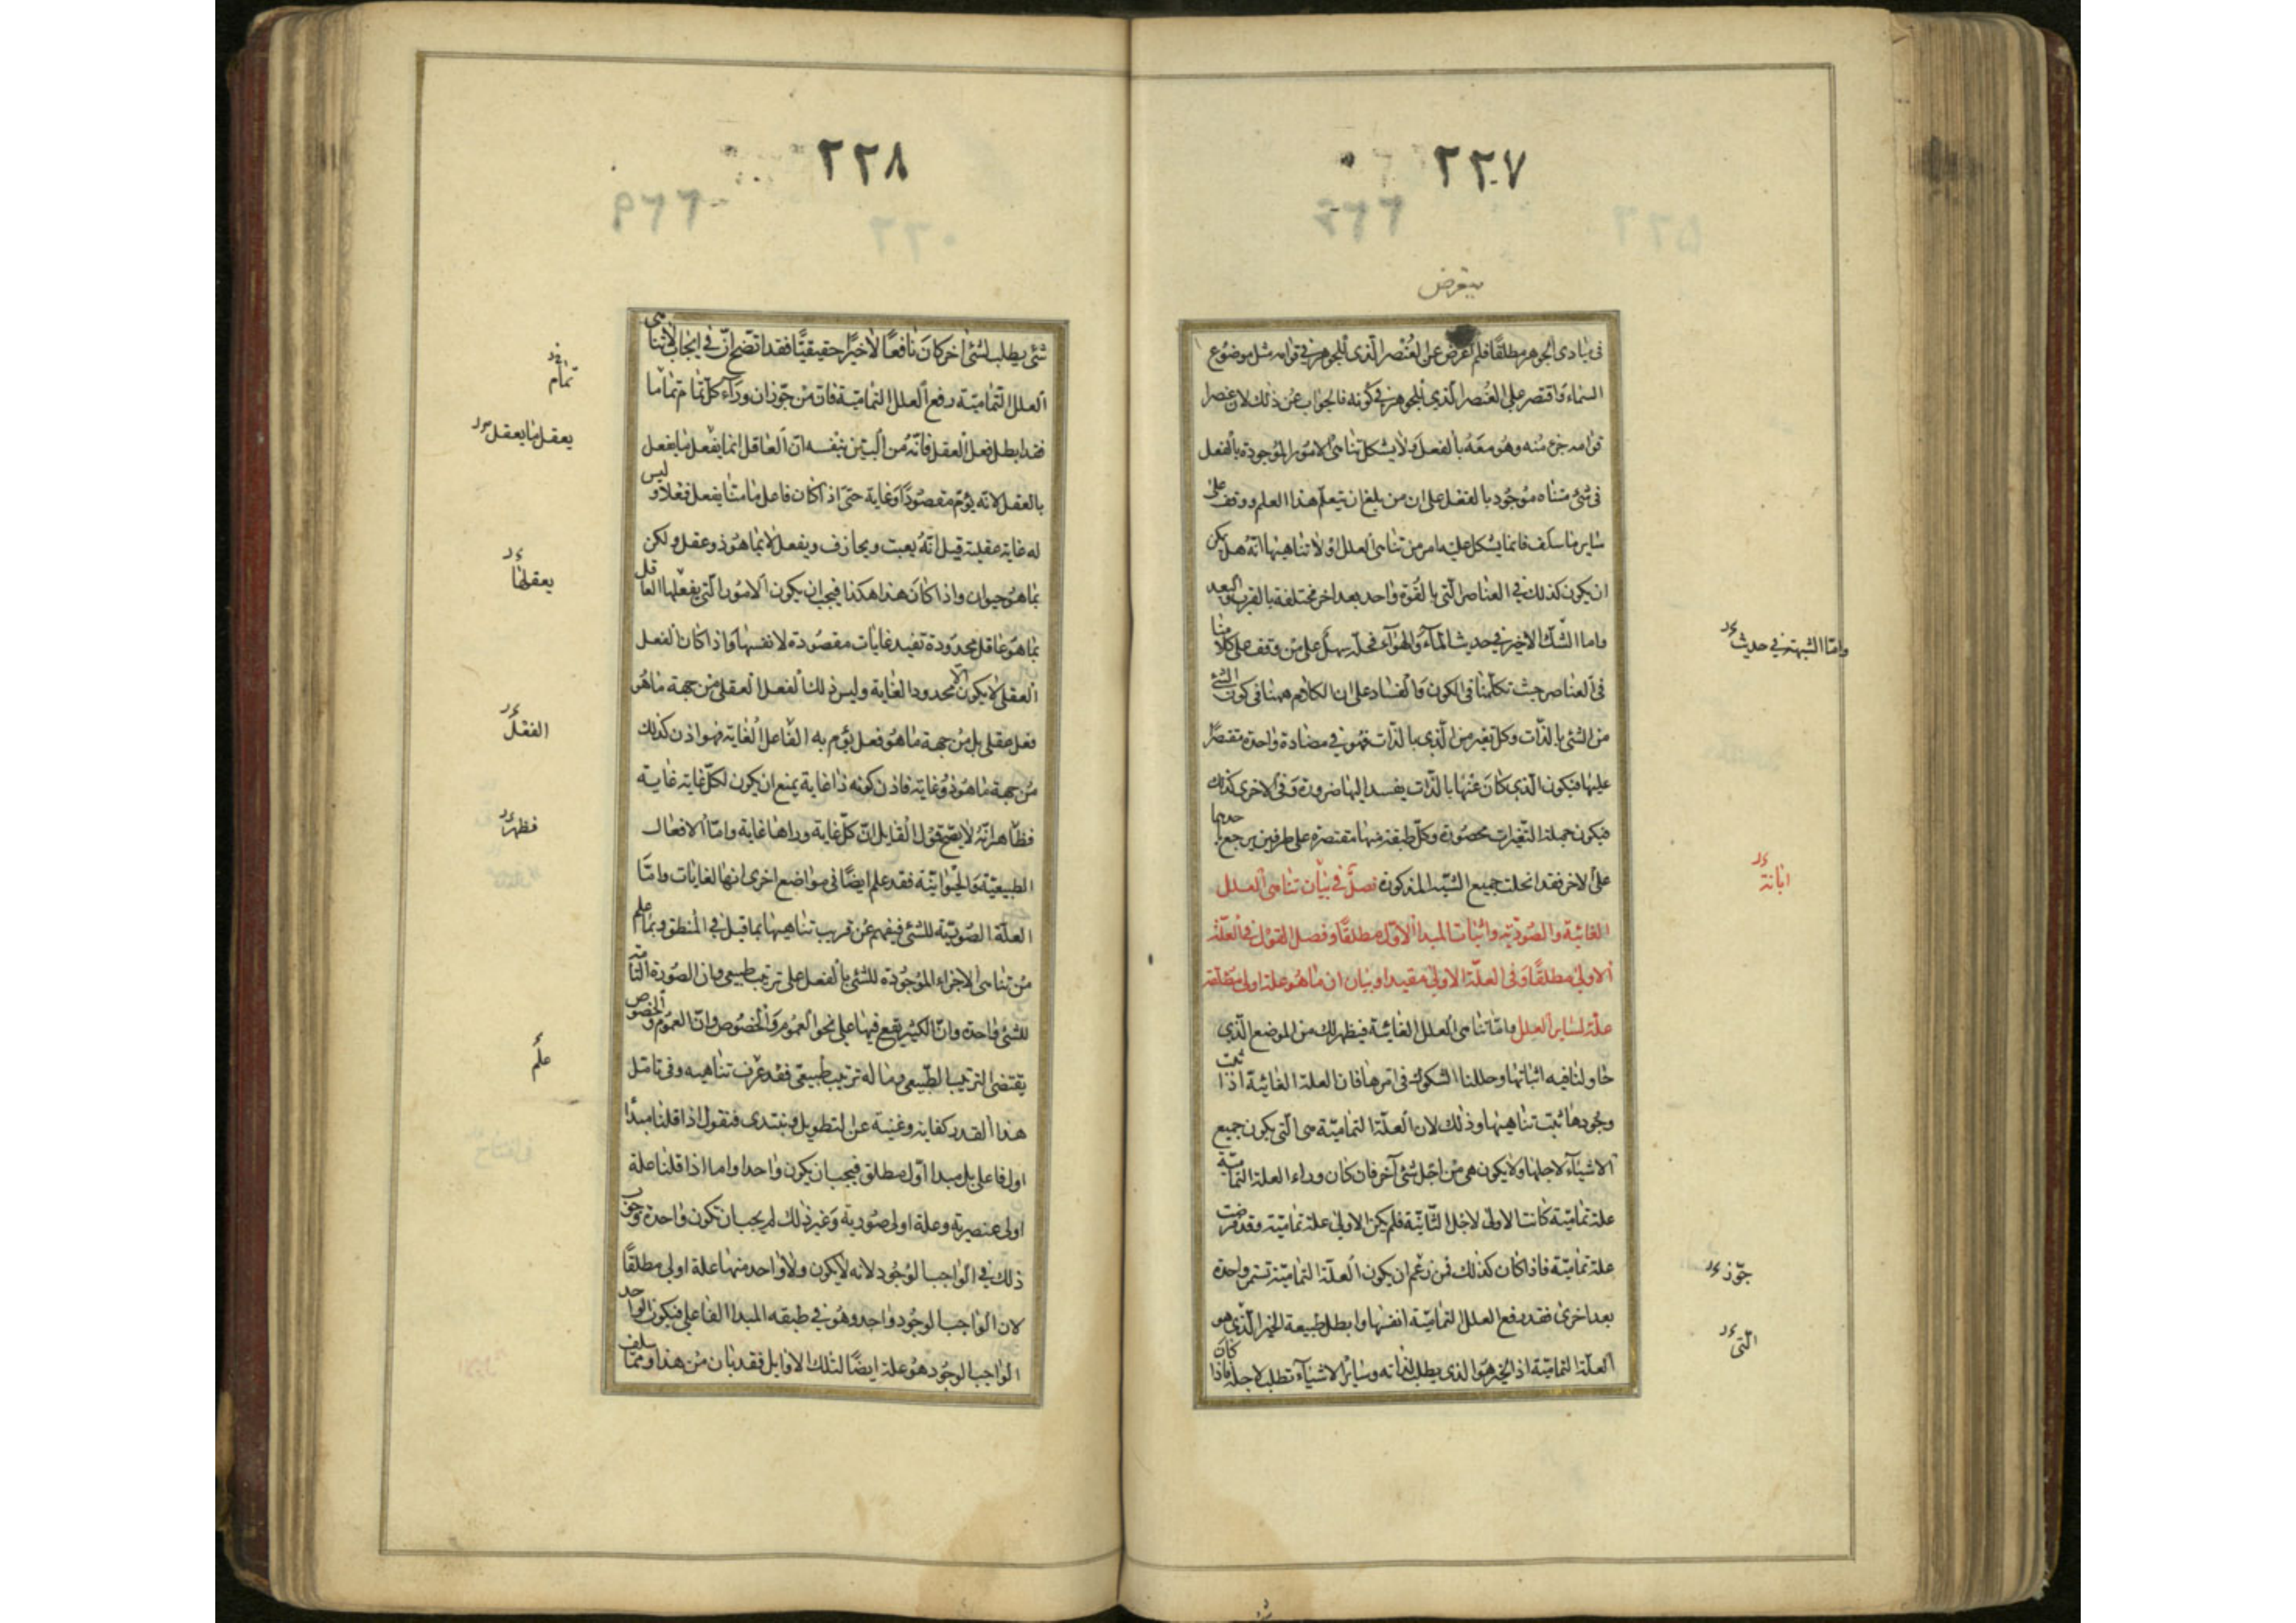 ٢٢٧
يتعرض
فى مبادى الجوهر مطلقًا فلم اعرض عن العُنْصر الّذى للجوهر فى قوامه مثل موضوع
السماء واقتصر على العُنصر الّذي للجوهر فى كونه فالجواب عن ذلك لان عنصر
قوامه جزء منه وهو معَهُ بالفعل ولا يشكل تناهى الامور الموجودة بالفعل
فى شئ متناه موجُود بالفعل على ان من بلغ ان يتعلّم هذا العلم ووقف على
ساير ما سلف فانما يشكل عليه امر من تناهى العلل او لا تناهيها انّه هل يمكن
ان يكون كذلك فى العناصر الّتى بالقُوة واحد بعد اخر مختلفة بالقرب والبعد
واما الشك الاخير فى حديث الماء والهوآء فحلّه سهل على من وقف على كلامنا
فى العناصر حيث تكلّمنا فى الكون والفساد على ان الكلام ههنا فى كون الشئ
من الشئ بالذّات وكل تغير من الّذى بالذّات فهو فى مضادة واحدة مقتصرًا
عليها فيكون الّذي كانَ عنها بالذّات يفسد اليها ضرورة وفى الاخرى كذلك
فيكون جملة التّغيرات محصورة وكل طبقة منها مقتصرة على طرفين يرجع احدهما
على الاخر فقد انحلت جميع الشبه المذكورة فصلٌ فى بيان تناهى العلل
الغائية والصّوريّة واثبات المبدأ الاوّل مطلقًا وفصل القول فى العلّة
الاولى مطلقًا وفى العلّة الاولى مقيدا وبيان ان ما هُو علة اولى مطلقة
علّة لساير العلل واما تناهى العلل الغائية فيظهر لك من الموضع الّذي
حاولنا فيه اثباتها وحللنا الشكوك فى امرها فان العلة الغائية اذا ثبت
وجُودها ثبت تناهيها وذلك لان العلّة التماميّة هى الّتى يكون جميع
الاشيآء لاجلها ولا يكون هى من اجل شئ آخر فان كان وراء العلة التماميّة
علة تماميّة كانت الاولى لاجل الثّانيّة فلم يكن الاولى علة تماميّة وقد فرضت
علة تماميّة فاذا كان كذلك فمن زعم ان يكون العلّة التماميّة تستمر واحدة
بعد اخرى فقد رفع العلل التماميّة انفسها وابطل طبيعة الخير الّذى هو
العلّة التماميّة اذ الخير هو الذى يطلب لذاته وسايرُ الاشيآء تطلب لاجله فاذا كان
واما الشبهة فى حديث
ابانة
جوّز
الّتى
٢٢٨
شئ يطلب لشئ اخر كانَ نافعًا لا خيرًا حقيقيًّا فقد اتضح انّ فى ايجاب لا تناهى
العلل التّماميّة رفع العلل التماميّة فان من جوّز ان ورآء كلّ تمام تماما
فقد ابطل فعل العقل فانّه من البيّن بنفسه ان العاقل انما يفعل ما يفعل
بالعقل لانه يؤمّ مقصُودًا وغاية حتّى اذا كان فاعل ما منّا يفعل فعلا وليس
له غاية عقلية قيل انّه يعبث ويجازف ويفعل لا بما هُو ذو عقل ولكن
بما هُو حيوان واذا كانَ هذا هكذا فيجب ان يكون الامُور الّتى يفعلها العاقل
بما هُو عاقل محدودة تفيد غايات مقصُودة لانفسها واذا كان الفعل
العقلى لا يكون الّا محدود الغاية وليس ذلك الفعل العقلى من جهة ما هُو
فعل عقلى بل من جهة ما هُو فعل يؤم به الفاعل الغاية فهو اذن كذلك
من جهة ما هُو ذو غاية فاذن كونه ذا غاية يمنع ان يكون لكلّ غاية غاية
فظاهر انّه لا يصح قول القايل انّ كلّ غاية وراها غاية وامّا الافعال
الطبيعيّة والحيوانيّة فقد علم ايضًا فى مواضع اخرى انها لغايات وامّا
العلّة الصّوريّة للشئ فيفهم عن قريب تناهيها بما قيل فى المنطق وبما علم
من تناهى الاجزاء الموجُودة للشئ بالفعل على ترتيب طبيعى وان الصّورة التامّة
للشئ واحدة وانّ الكثير يقع فيها على نحو العموم والخصُوص وانّ العموم والخصوص
يقتضى الترتيب الطّبيعى وما له ترتيب طبيعى فقد عرف تناهيه وفى تامّل
هذا القدر كفاية وغنية عن التطويل ونبتدى فنقول اذا قلنا مبدأ
اول فاعلى بل مبدا اوّل مطلق فيجب ان يكون واحدا واما اذا قلنا علة
اولى عنصرية وعلة اولى صُورية وغير ذلك لم يجب ان تكون واحدة وجوب
ذلك فى الواجب الوُجُود لانه لا يكون ولا واحد منها علة اولى مطلقًا
لان الواجب الوجُود واحد وهُو فى طبقه المبدا الفاعلى فيكون الواحد
الواجب الوجُود هُو علة ايضًا لتلك الاوايل فقد بان من هذا وممّا سلف
تمام
يعقل ما يعقل
يعقلها
الفعل
فظهر
علم